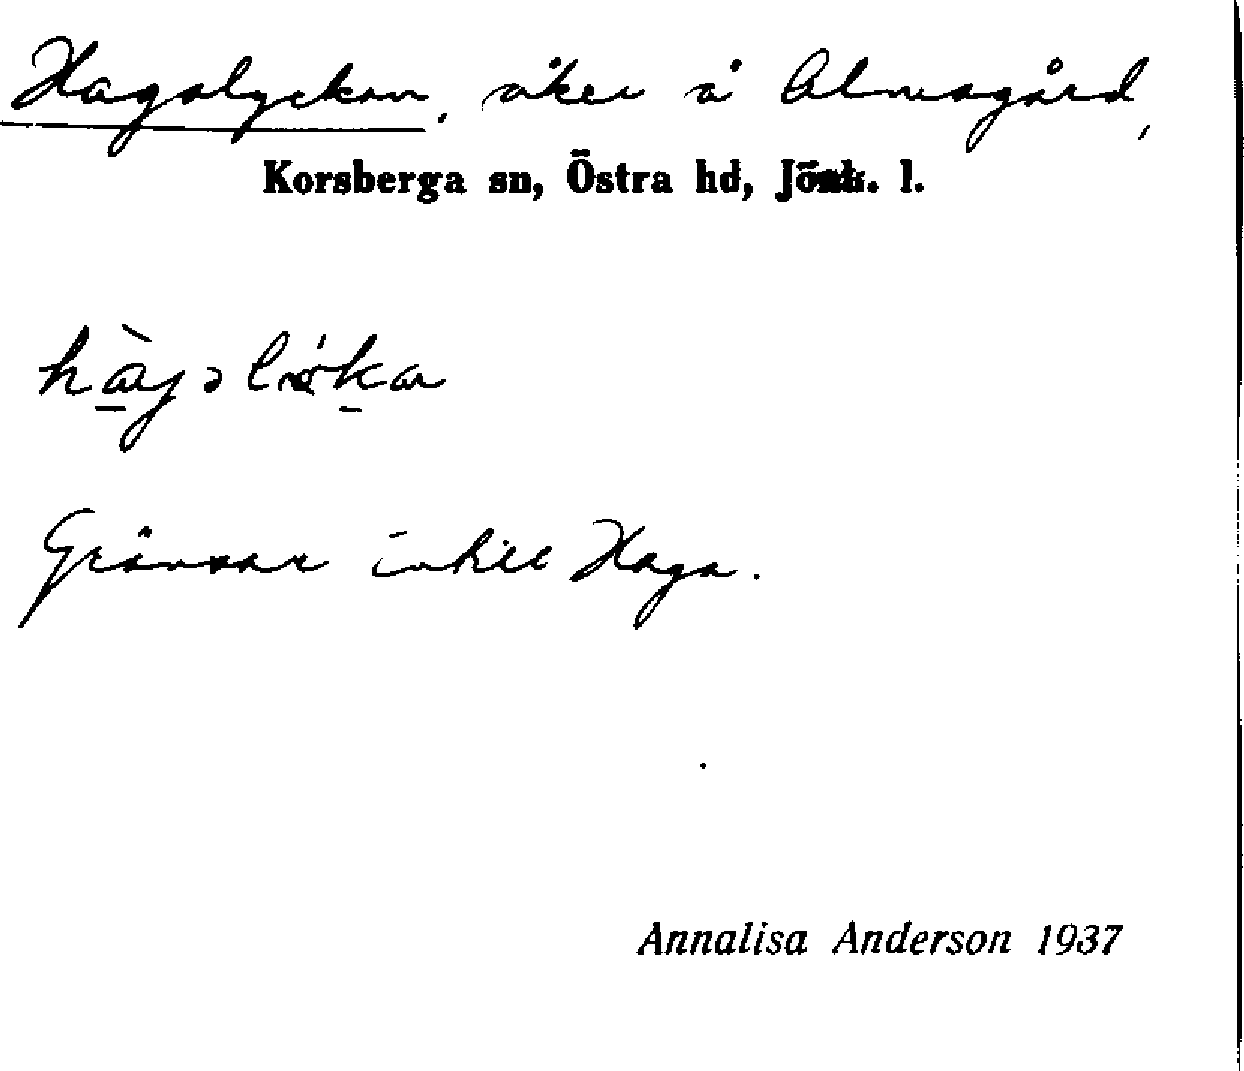 Hagalyckan, åker å Almagård,
Korsberga sn, Östra hd, Jönk. l.
Gränsar intill Haga.
Annalisa Anderson 1937